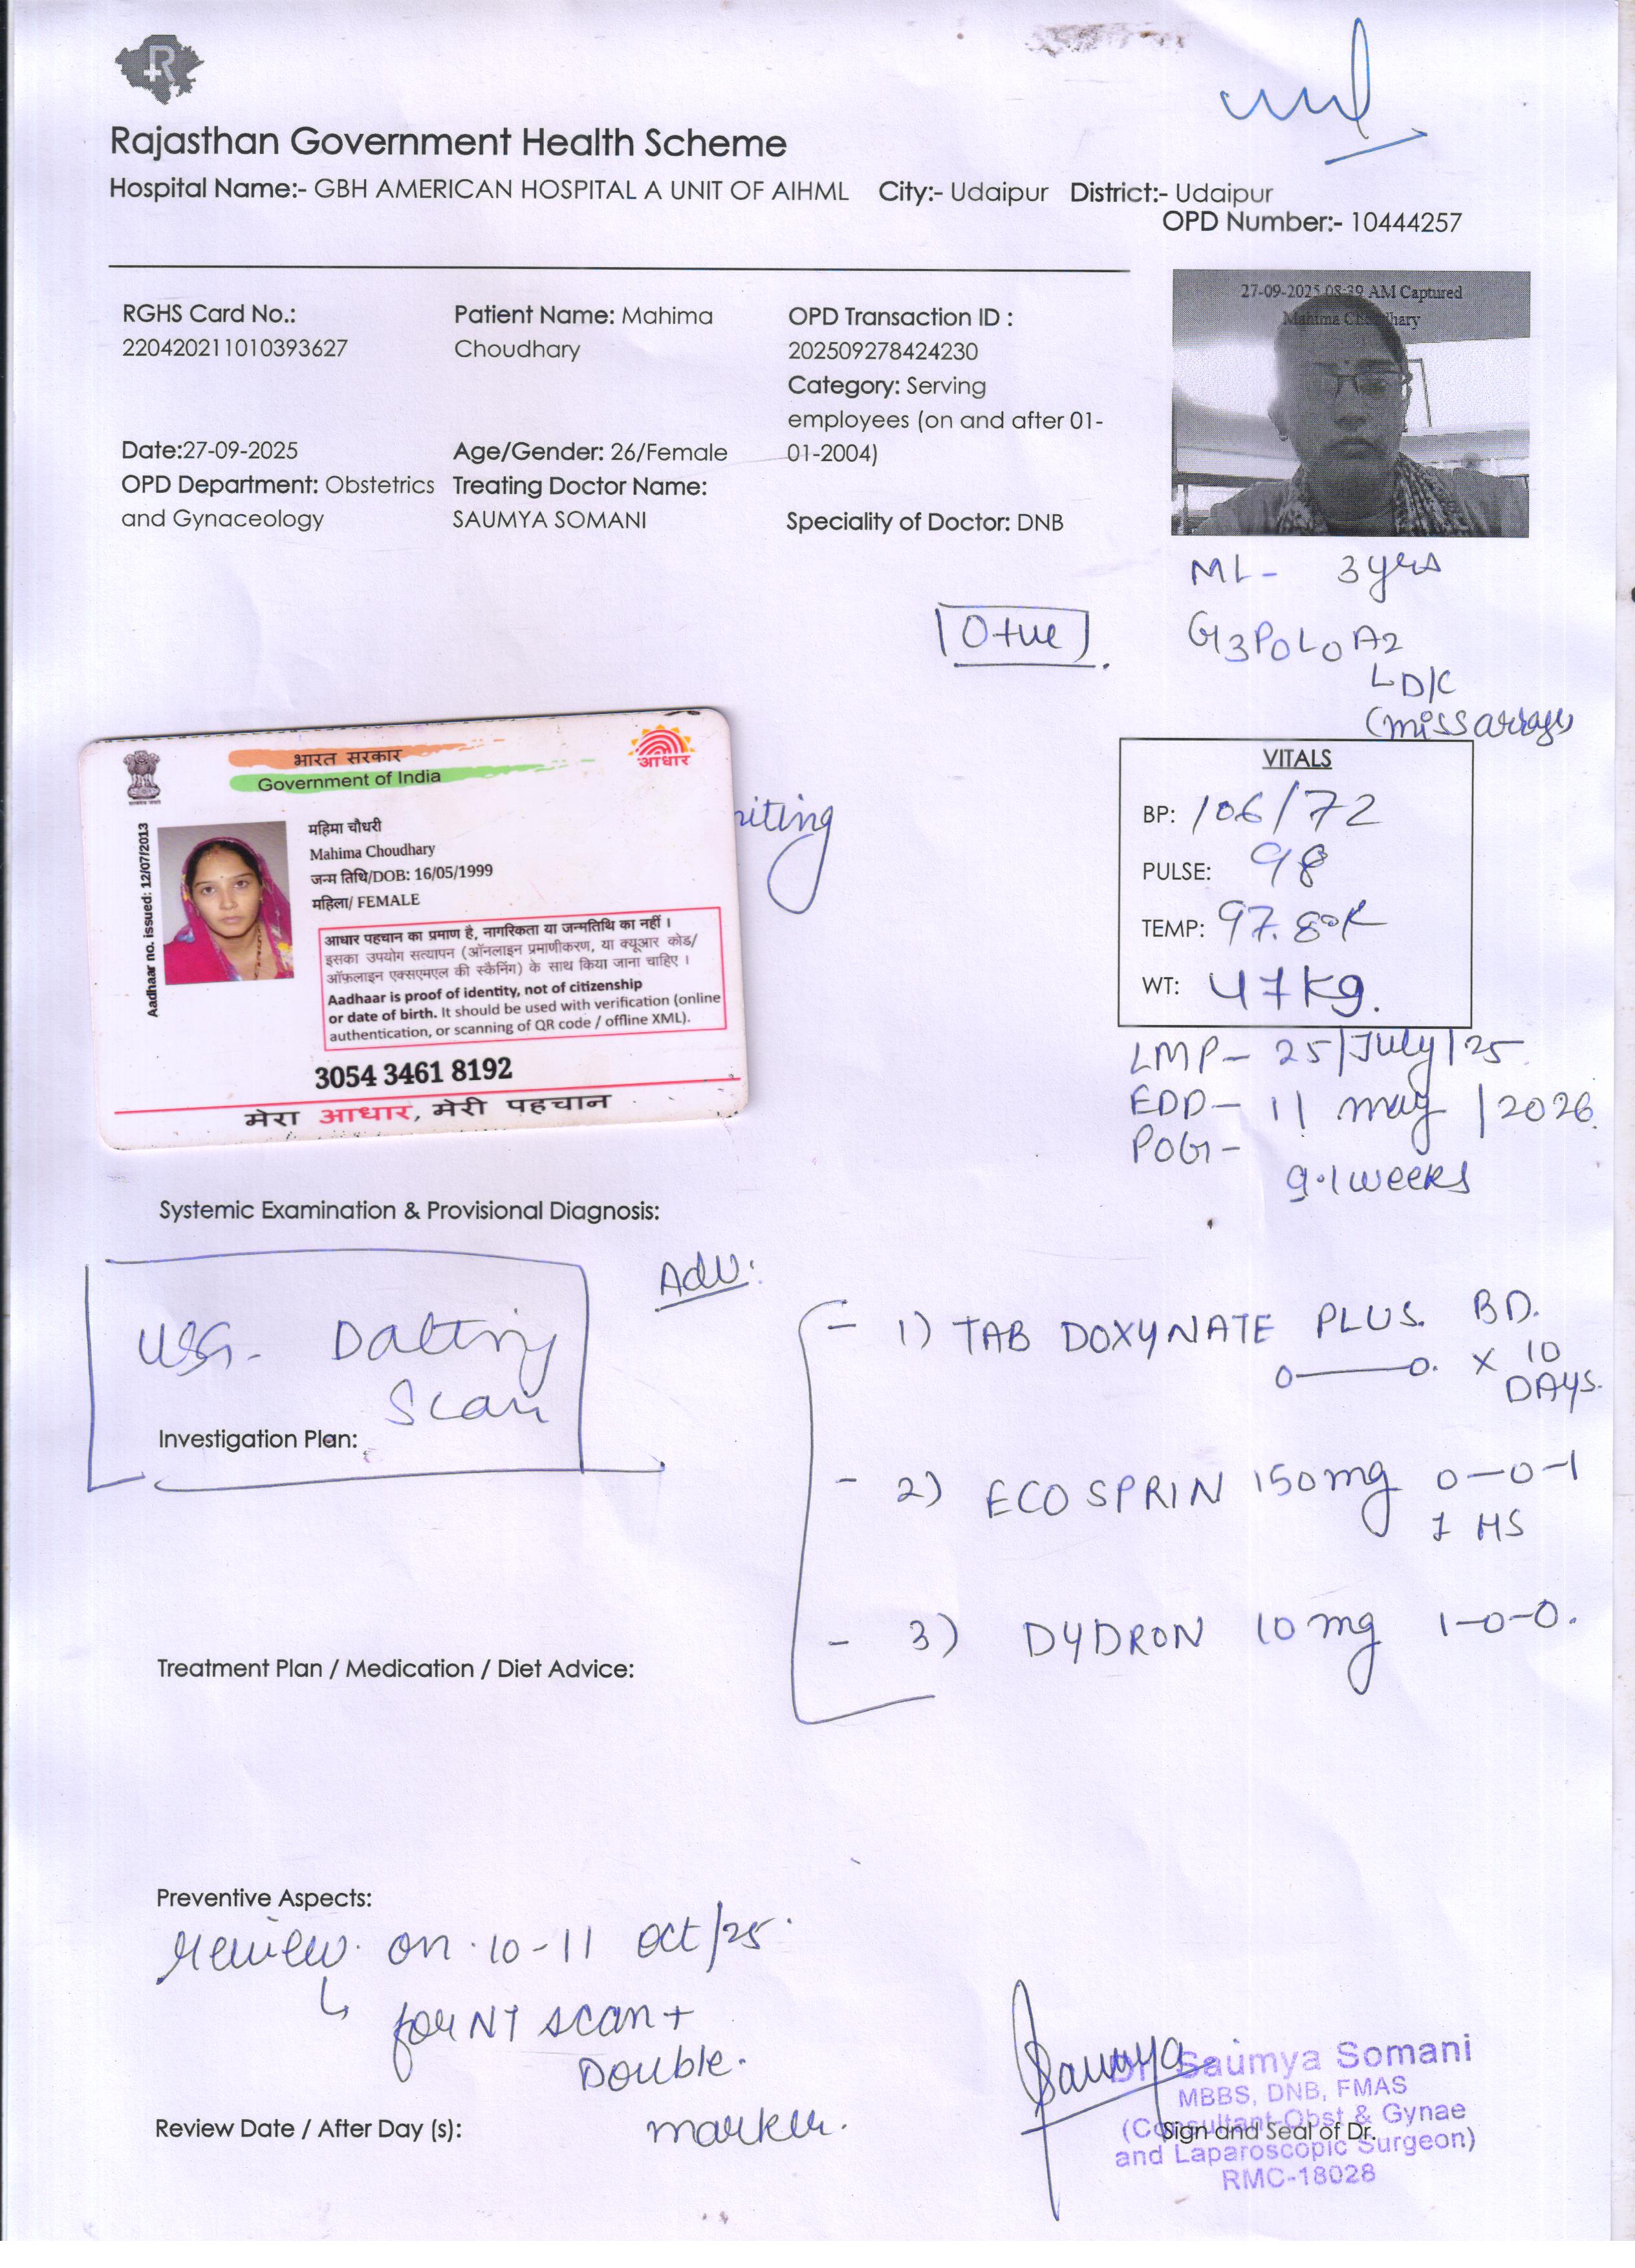 Rajasthan Government Health Scheme
Hospital Name:- GBH AMERICAN HOSPITAL A UNIT OF AIHML City:- Udaipur District:- Udaipur
OPD Number:- 10444257
RGHS Card No.:
220420211010393627
Patient Name: Mahima
Choudhary
OPD Transaction ID :
202509278424230
Category: Serving
employees (on and after 01-
01-2004)
27-09-2025 08:39 AM Captured
Mahima Choudhary
Date:27-09-2025
Age/Gender: 26/Female
OPD Department: Obstetrics
and Gynaceology
Treating Doctor Name:
SAUMYA SOMANI
Speciality of Doctor: DNB
ML- 3 yrs
O+ve
G3P0L0A2
D/C
(missarage)
भारत सरकार
Government of India
आधार
Aadhaar no. issued: 12/07/2013
महिमा चौधरी
Mahima Choudhary
जन्म तिथि/DOB: 16/05/1999
महिला/ FEMALE
आधार पहचान का प्रमाण है, नागरिकता या जन्मतिथि का नहीं ।
इसका उपयोग सत्यापन (ऑनलाइन प्रमाणीकरण, या क्यूआर कोड/
ऑफलाइन एक्सएमएल की स्कैनिंग) के साथ किया जाना चाहिए ।
Aadhaar is proof of identity, not of citizenship
or date of birth. It should be used with verification (online
authentication, or scanning of QR code / offline XML).
3054 3461 8192
मेरा आधार, मेरी पहचान
VITALS
BP: 106/72
PULSE: 98
TEMP: 97.8°F
WT: 47kg.
LMP- 25/July/25
EDD- 11 may/2026.
POG-
9.1 weeks
Systemic Examination & Provisional Diagnosis:
USG- Datting
Scan
Investigation Plan:
Adv:
- 1) TAB DOXYNATE PLUS. BD.
0——0. x 10
DAYS.
- 2) ECOSPRIN 150mg 0-0-1
HS
- 3) DYDRON 10mg 1-0-0.
Treatment Plan / Medication / Diet Advice:
Preventive Aspects:
review on 10-11 oct/25.
for NT scan +
Double.
marker.
Review Date / After Day (s):
Saumya
Dr. Saumya Somani
MBBS, DNB, FMAS
(Consultant-Obst & Gynae
Sign and Seal of Dr.
and Laparoscopic Surgeon)
RMC-18028